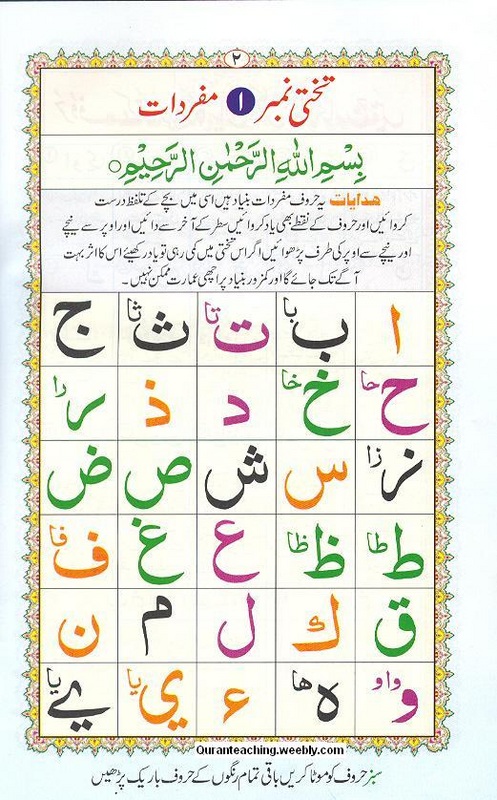 ۲
تختی نمبر ۱ مفردات
بِسْمِ اللهِ الرَّحْمٰنِ الرَّحِيْمِ ○
ھدایات یہ حروف مفردات بنیاد ہیں اسی میں بچے کے تلفظ درست
کروائیں اور حروف کے نقطے بھی یاد کروائیں سطر کے آخر سے دائیں اور اوپر سے نیچے
اور نیچے سے اوپر کی طرف پڑھوائیں اگر اس تختی میں کمی رہی تو یاد رکھیئے اس کا اثر بہت
آگے تک جائے گا اور کمزور بنیاد پر اچھی عمارت ممکن نہیں۔
ا ب با ت تا ث ثا ج
ح حا خ خا د ذ ر را
ز زا س ش ص ض
ط طا ظ ظا ع غ ف فا
ق ك ل م ن
و واو ه ها ء ي يا ے يا
Quranteaching.weebly.com
سبز حروف کو موٹا کریں باقی تمام رنگوں کے حروف باریک پڑھیں